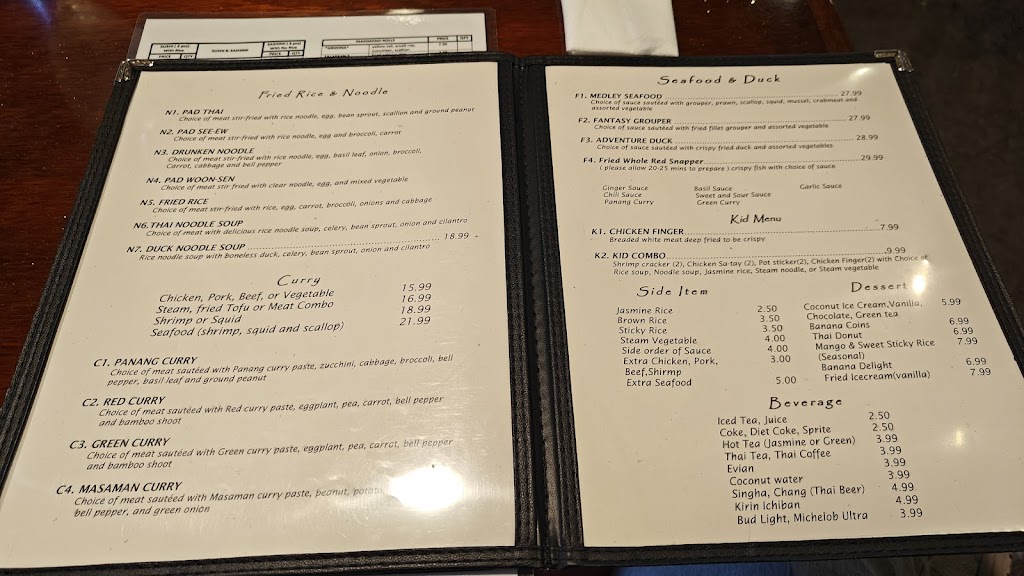 SUSHI ( 2 pcs)
With Rice
SUSHI & SASHIMI
SASHIMI ( 3 pcs)
With No Rice
PRICE QTY
PRICE QTY
MAKIMONO ROLLS
PRICE QTY
Fried Rice & Noodle
N1. PAD THAI
Choice of meat stir-fried with rice noodle, egg, bean sprout, scallion and ground peanut
N2. PAD SEE-EW
Choice of meat stir-fried with rice noodle, egg and broccoli, carrot
N3. DRUNKEN NOODLE
Choice of meat stir-fried with rice noodle, egg, basil leaf, onion, broccoli,
Carrot, cabbage and bell pepper
N4. PAD WOON-SEN
Choice of meat stir fried with clear noodle, egg, and mixed vegetable
N5. FRIED RICE
Choice of meat stir-fried with rice, egg, carrot, broccoli, onions and cabbage
N6.THAI NOODLE SOUP
Choice of meat with delicious rice noodle soup, celery, bean sprout, onion and cilantro
N7. DUCK NOODLE SOUP 18.99
Rice noodle soup with boneless duck, celery, bean sprout, onion and cilantro
Curry
Chicken, Pork, Beef, or Vegetable 15.99
Steam, fried Tofu or Meat Combo 16.99
Shrimp or Squid 18.99
Seafood (shrimp, squid and scallop) 21.99
C1. PANANG CURRY
Choice of meat sautéed with Panang curry paste, zucchini, cabbage, broccoli, bell
pepper, basil leaf and ground peanut
C2. RED CURRY
Choice of meat sautéed with Red curry paste, eggplant, pea, carrot, bell pepper
and bamboo shoot
C3. GREEN CURRY
Choice of meat sautéed with Green curry paste, eggplant, pea, carrot, bell pepper
and bamboo shoot
C4. MASAMAN CURRY
Choice of meat sautéed with Masaman curry paste, peanut,
bell pepper, and green onion
Seafood & Duck
F1. MEDLEY SEAFOOD 27.99
Choice of sauce sautéed with grouper, prawn, scallop, squid, mussel, crabmeat and
assorted vegetable
F2. FANTASY GROUPER 27.99
Choice of sauce sautéed with fried fillet grouper and assorted vegetable
F3. ADVENTURE DUCK 28.99
Choice of sauce sautéed with crispy fried duck and assorted vegetables
F4. Fried Whole Red Snapper 29.99
( please allow 20-25 mins to prepare ) crispy fish with choice of sauce
Ginger Sauce Basil Sauce Garlic Sauce
Chili Sauce Sweet and Sour Sauce
Panang Curry Green Curry
Kid Menu
K1. CHICKEN FINGER 7.99
Breaded white meat deep fried to be crispy
K2. KID COMBO 9.99
Shrimp cracker (2), Chicken Sa-tay (2), Pot sticker(2), Chicken Finger(2) with Choice of
Rice soup, Noodle soup, Jasmine rice, Steam noodle, or Steam vegetable
Side Item
Jasmine Rice 2.50
Brown Rice 3.50
Sticky Rice 3.50
Steam Vegetable 4.00
Side order of Sauce 4.00
Extra Chicken, Pork, 3.00
Beef,Shirmp
Extra Seafood 5.00
Dessert
Coconut Ice Cream,Vanilla, 5.99
Chocolate, Green tea
Banana Coins 6.99
Thai Donut 6.99
Mango & Sweet Sticky Rice 7.99
(Seasonal)
Banana Delight 6.99
Fried Icecream(vanilla) 7.99
Beverage
Iced Tea, Juice 2.50
Coke, Diet Coke, Sprite 2.50
Hot Tea (Jasmine or Green) 3.99
Thai Tea, Thai Coffee 3.99
Evian 3.99
Coconut water 3.99
Singha, Chang (Thai Beer) 4.99
Kirin Ichiban 4.99
Bud Light, Michelob Ultra 3.99